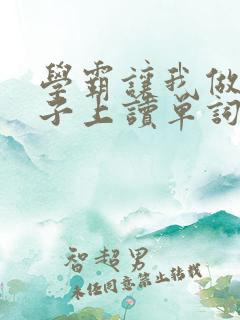 學霸讓我做
子上讀單詞
智超男
未任同意禁止转载